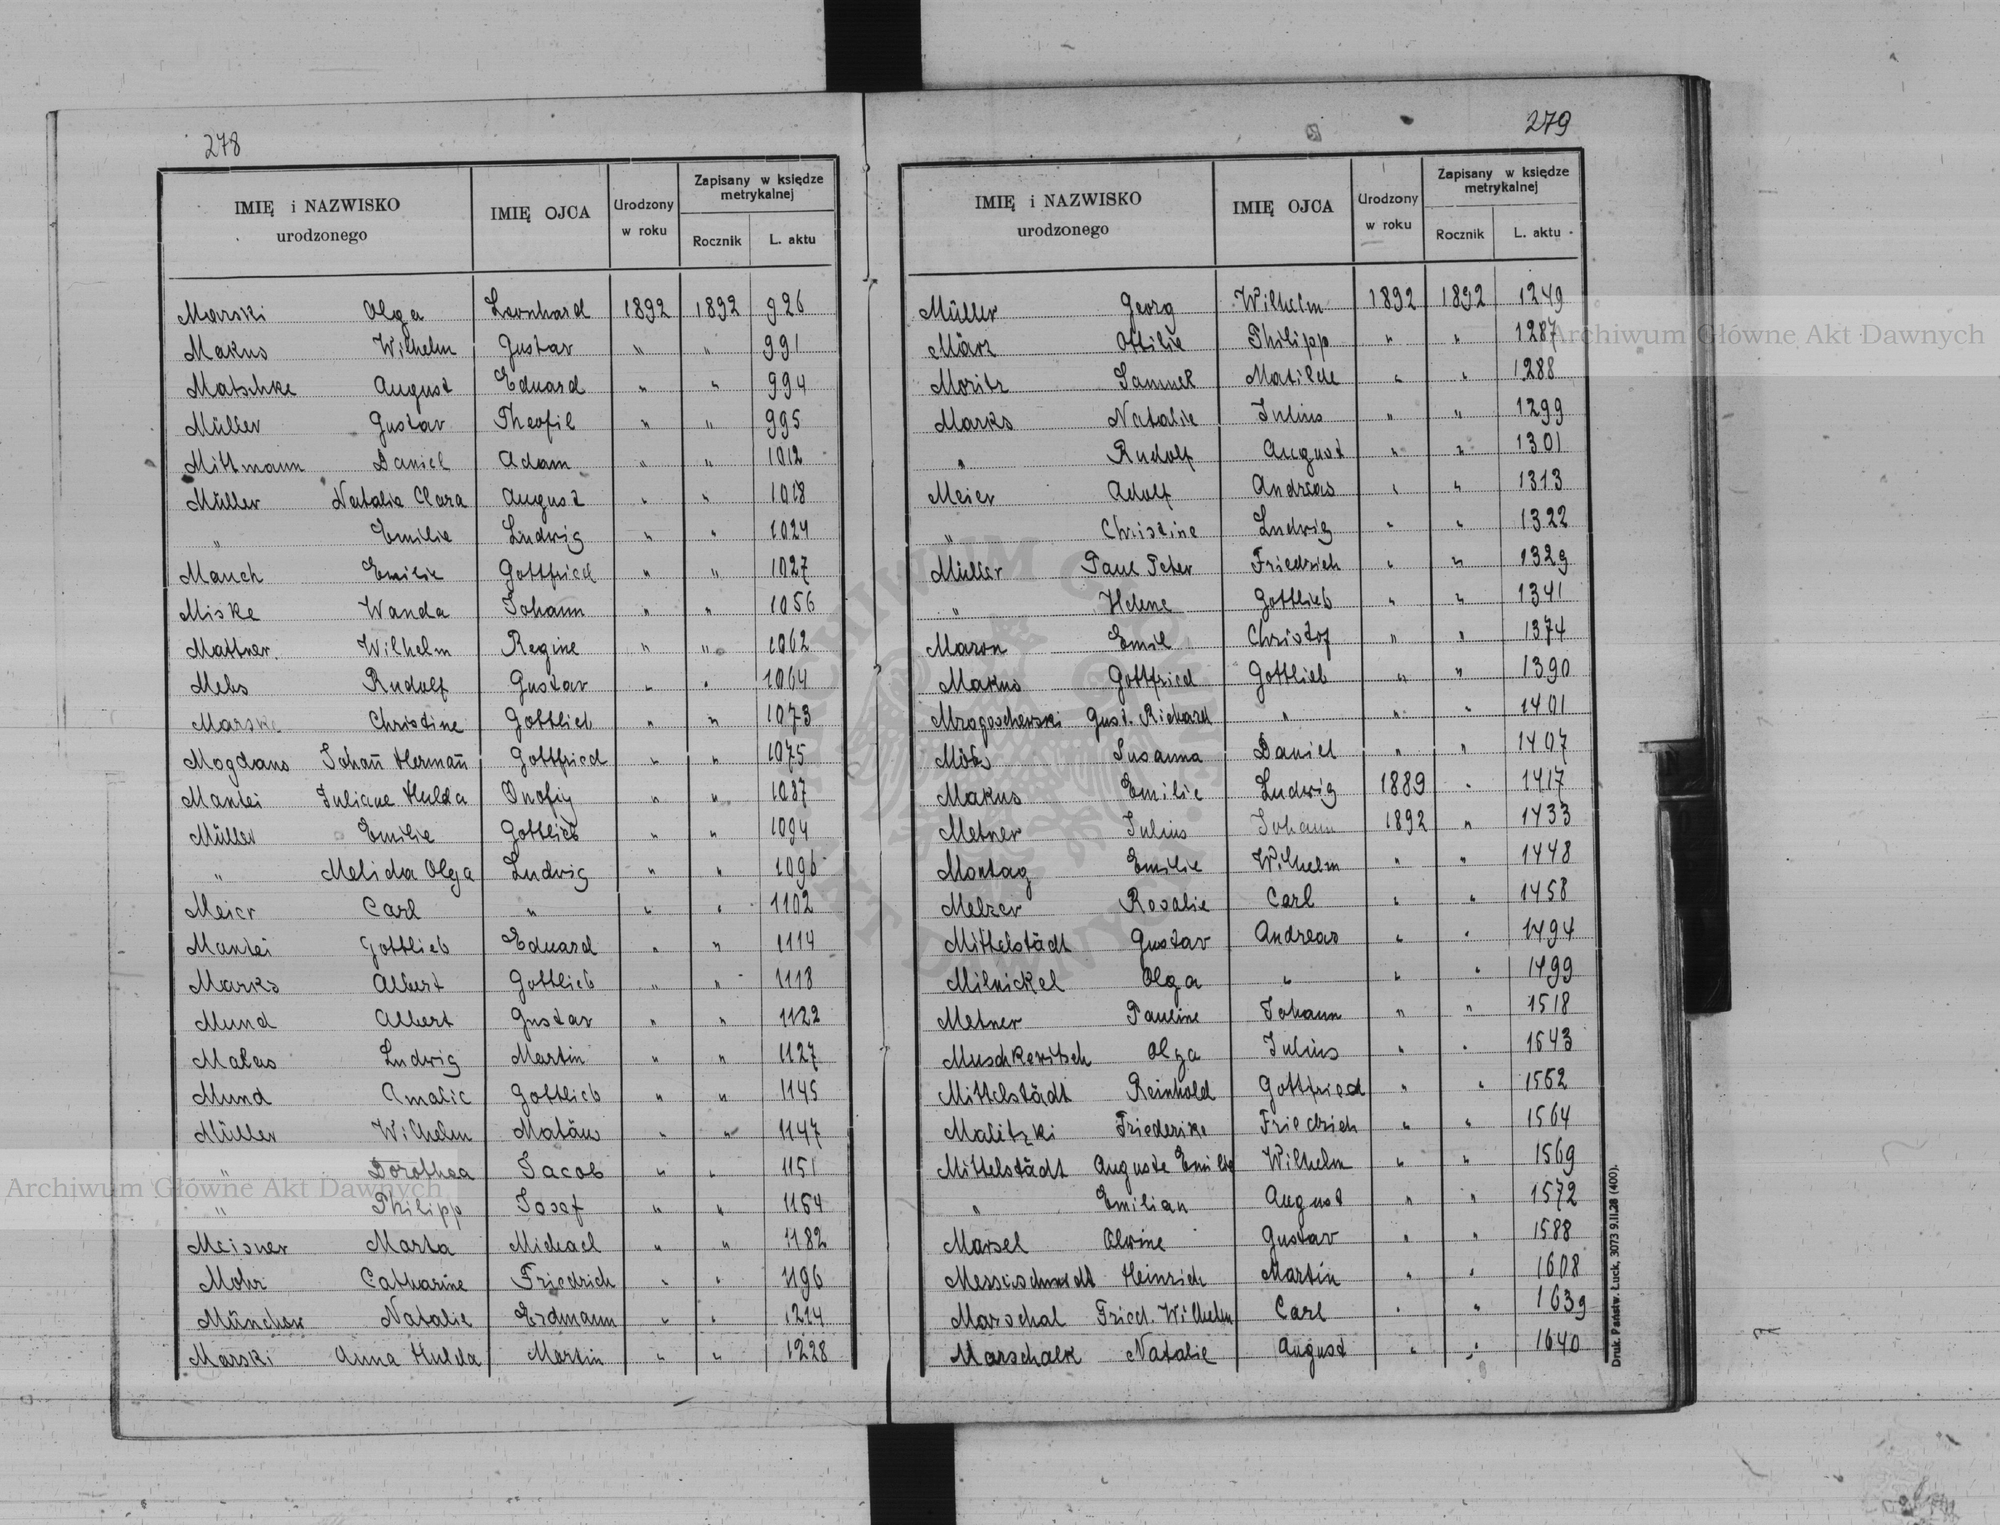 278
IMIĘ i NAZWISKO urodzonego | IMIĘ OJCA | Urodzony w roku | Zapisany w księdze metrykalnej
Rocznik | L. aktu
Marski Olga Leonhard 1892 1892 926
Makus Wilhelm Gustav " " 991
Matschke August Eduard " " 994
Müller Gustav Theofil " " 995
Mittmann Daniel Adam " " 1012
Müller Natalie Clara August " " 1018
" Emilie Ludwig " " 1024
Mauch Emilie Gottfried " " 1027
Miske Wanda Johann " " 1056
Mattner Wilhelm Regine " " 1062
Mebs Rudolf Gustav " " 1064
Marske Christine Gottlieb " " 1073
Mogdans Johañ Hermañ Gottfried " " 1075
Mantei Juliane Hulda Onofiy " " 1087
Müller Emilie Gottlieb " " 1094
" Melida Olga Ludwig " " 1096
Meier Carl " " " 1102
Mantei Gottlieb Eduard " " 1114
Marks Albert Gottlieb " " 1118
Mund Albert Gustav " " 1122
Malas Ludwig Martin " " 1127
Mund Amalie Gottlieb " " 1145
Müller Wilhelm Matäus " " 1147
" Dorothea Jacob " " 1151
" Philipp Josef " " 1154
Meisner Marta Michael " " 1182
Mohr Catharine Friedrich " " 1196
Münchow Natalie Erdmann " " 1214
Marski Anna Hulda Martin " " 1228
279
IMIĘ i NAZWISKO urodzonego | IMIĘ OJCA | Urodzony w roku | Zapisany w księdze metrykalnej
Rocznik | L. aktu
Müller Georg Wilhelm 1892 1892 1249
März Ottilie Philipp " " 1287
Moritz Samuel Matilde " " 1288
Marks Natalie Julius " " 1299
" Rudolf August " " 1301
Meier Adolf Andreas " " 1313
" Christine Ludwig " " 1322
Müller Paul Peter Friedrich " " 1329
" Helene Gottlieb " " 1341
Maron Emil Christof " " 1374
Makus Gottfried Gottlieb " " 1390
Mrogoschewski Gust. Richard " " " 1401
Susanna Daniel " " 1407
Makus Emilie Ludwig 1889 " 1417
Metner Julius Johann 1892 " 1433
Montag Emilie Wilhelm " " 1448
Melzer Rosalie Carl " " 1458
Mittelstädt Gustav Andreas " " 1494
Milnickel Olga " " " 1499
Metner Pauline Johann " " 1518
Muschkewitsch Olga Julius " " 1543
Mittelstädt Reinhold Gottfried " " 1552
Malitzki Friederike Friedrich " " 1564
Mittelstädt Auguste Emilie Wilhelm " " 1569
" Emilian August " " 1572
Marsel Alwine Gustav " " 1588
Messerschmidt Heinrich Martin " " 1608
Marschal Fried. Wilhelm Carl " " 1639
Marschalk Natalie August " " 1640
Druk. Państw. Łuck, 3073 9.II.28 (400).
Archiwum Główne Akt Dawnych
Archiwum Główne Akt Dawnych
ARCHIWUM GŁÓWNE AKT DAWNYCH